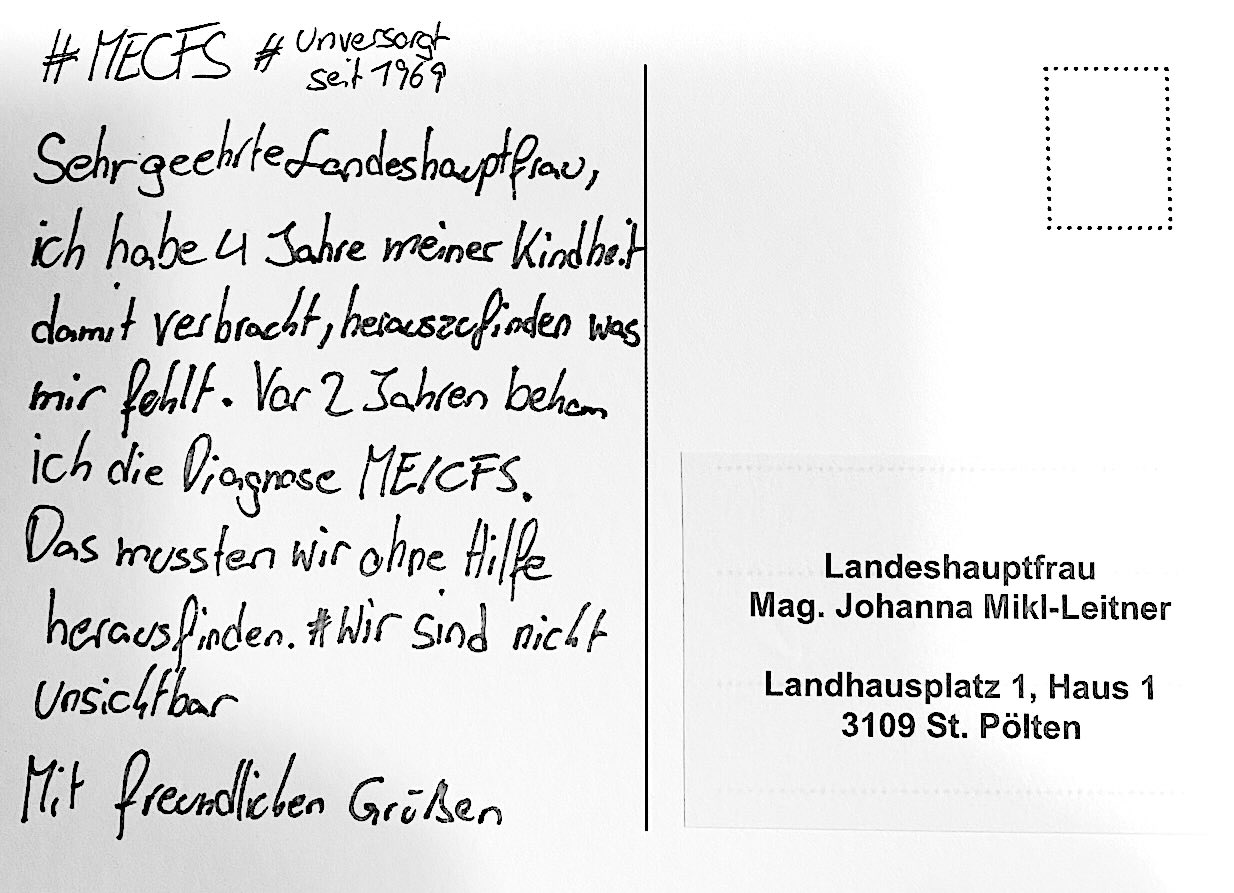 #MECFS #Unversorgt
seit 1969
Sehr geehrte Landeshauptfrau,
ich habe 4 Jahre meiner Kindheit
damit verbracht, herauszufinden was
mir fehlt. Vor 2 Jahren bekam
ich die Diagnose ME/CFS.
Das mussten wir ohne Hilfe
herausfinden. #Wir sind nicht
unsichtbar
Mit freundlichen Grüßen
Landeshauptfrau
Mag. Johanna Mikl-Leitner
Landhausplatz 1, Haus 1
3109 St. Pölten